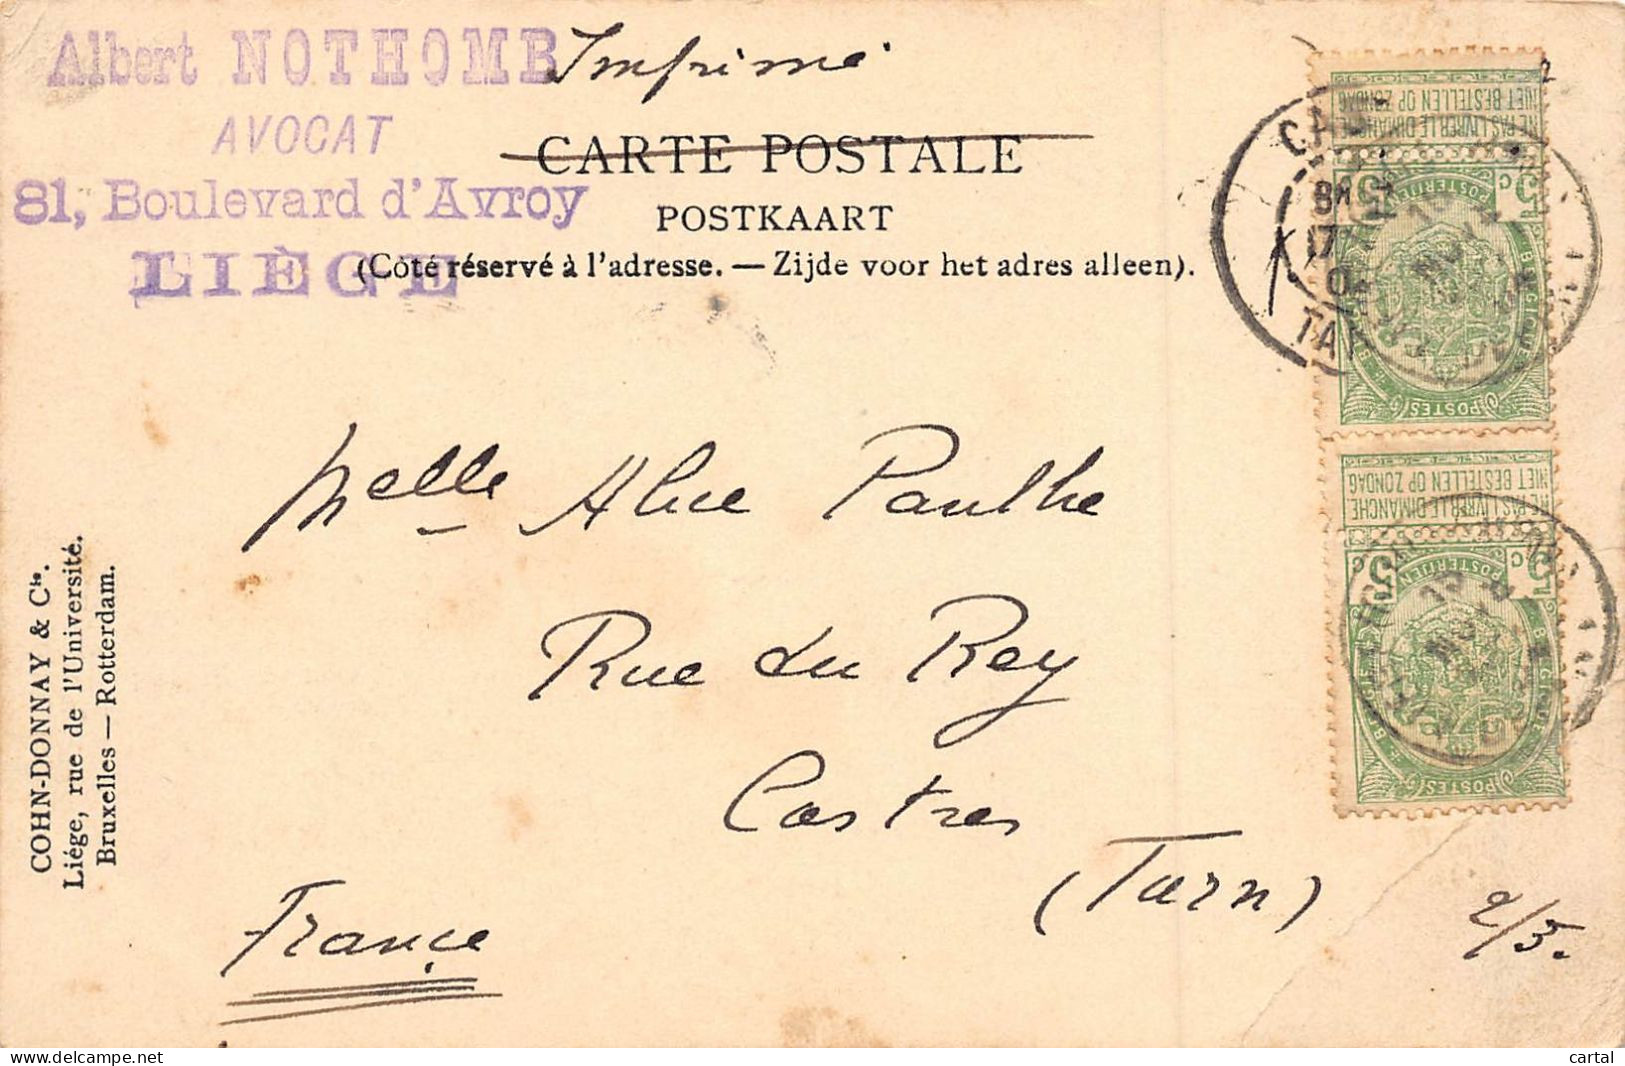 Albert NOTHOMB
AVOCAT
81, Boulevard d'Avroy
LIÈGE
Imprimé
CARTE POSTALE
POSTKAART
(Côté réservé à l'adresse. — Zijde voor het adres alleen).
NIET BESTELLEN OP ZONDAG
NE PAS LIVRER LE DIMANCHE
5 c
POSTERIJEN
BELGIQUE
POSTES
TAR
NIET BESTELLEN OP ZONDAG
NE PAS LIVRER LE DIMANCHE
5 c
POSTERIJEN
BELGIQUE
POSTES
Melle Alice Paulhe
Rue du Rey
Castres
(Tarn)
France
2/5.
COHN-DONNAY & Cie.
Liége, rue de l'Université.
Bruxelles — Rotterdam.
cartal